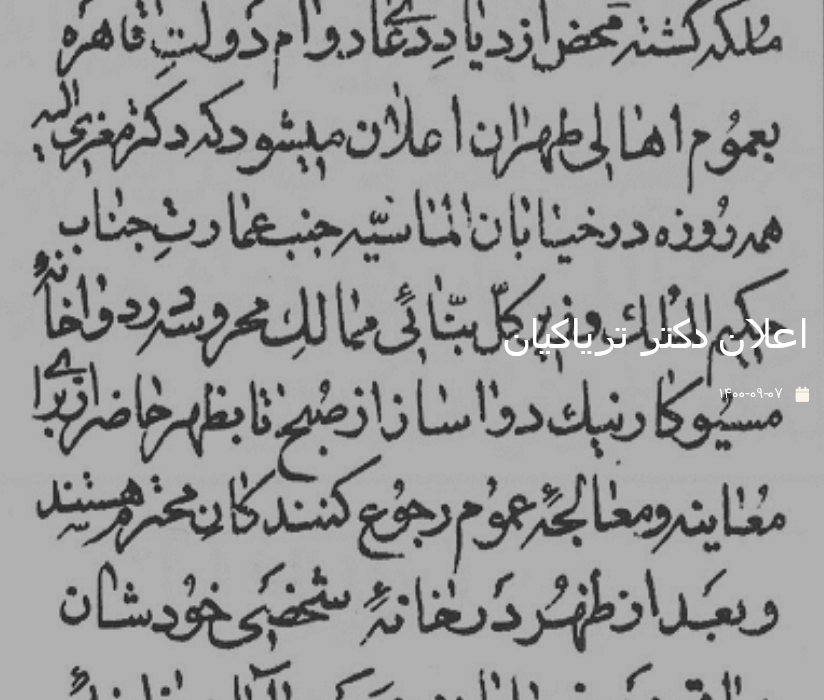 ملکه گشته محض ازدیاد دعای دوام دولتِ قاهره
بعموم اهالی طهران اعلان میشود که دکتر مغربی الیه
همه روزه در خیابان الماسیّه جنب عمارتِ جناب
حکیم الملک وزیر کلّ بنّائی ممالک محروسه در دواخانهٔ
اعلان دکتر تریاکیان
۱۴۰۰-۰۹-۰۷
مسیو کارنیک دواساز از صبح تا بظهر حاضر از برای
معاینه و معالجهٔ عموم رجوع کنندکان محترم هستیند
و بعد از ظهر در خانهٔ شخصی خودشان